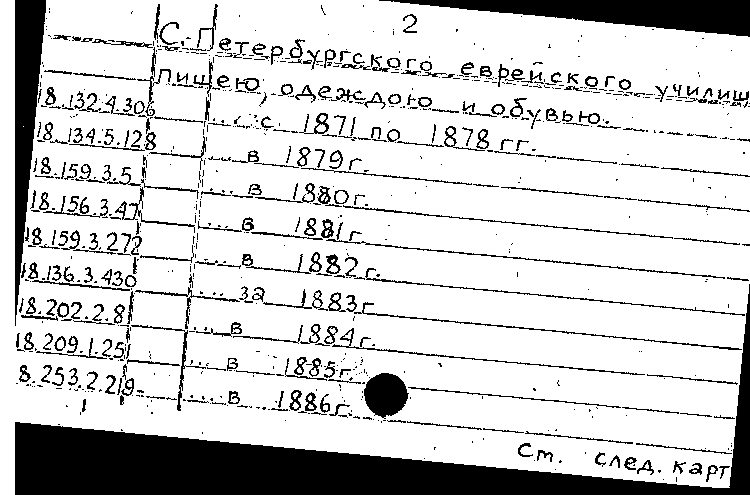 2
С.-Петербургского еврейского училищ
пищею, одеждою и обувью.
18.132.4.306 ... с 1871 по 1878 гг.
18.134.5.128 ... в 1879г.
18.159.3.5 ... в 1880г.
18.156.3.47 ... в 1881г.
18.159.3.272 ... в 1882г.
18.136.3.430 ... за 1883г
18.202.2.8 ... в 1884г.
18.209.1.25 ... в 1885г.
8.253.2.219 ... в 1886г.
См. след. карт